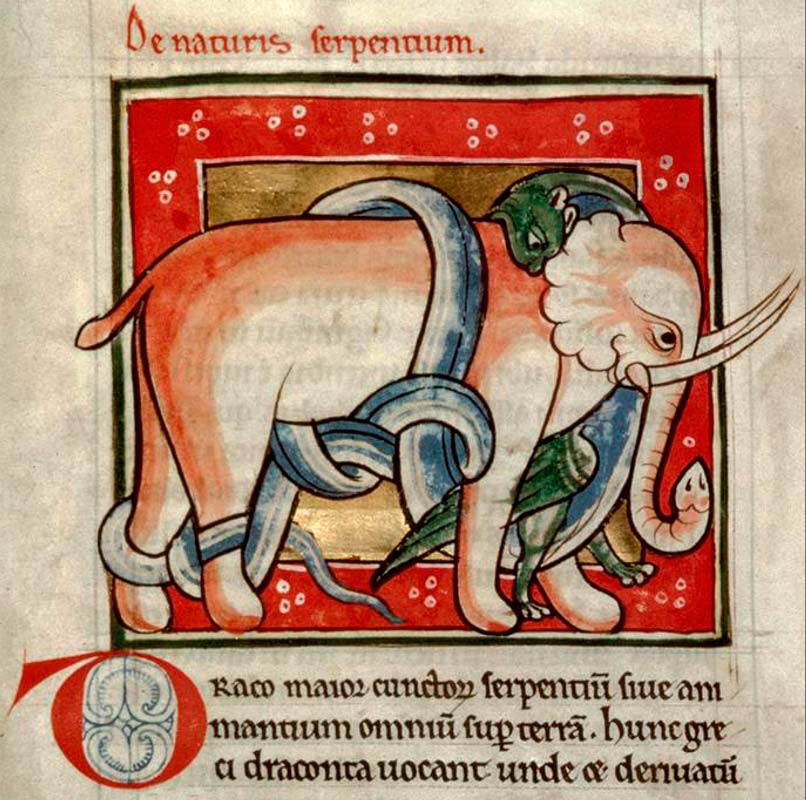 De naturis serpentium.
Draco maior cunctoꝝ serpentiū siue ani
mantium omniū suꝑ terrā. hunc gre
ci draconta uocant unde ⁊ deriuatū